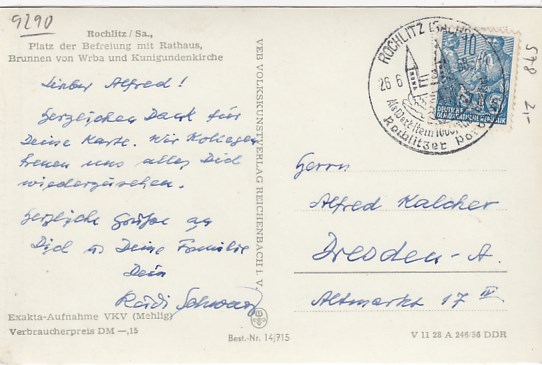 9290
Rochlitz / Sa.,
Platz der Befreiung mit Rathaus,
Brunnen von Wrba und Kunigundenkirche
Lieber Alfred!
Herzlichen Dank für
Deine Karte. Wir Kollegen
freuen uns alle, Dich
wiederzusehen.
Herzliche Grüße an
Dich u. Deine Familie
Dein
Schwarz
Exakta-Aufnahme VKV (Mehlig)
Verbraucherpreis DM —,15
VEB VOLKSKUNSTVERLAG REICHENBACH I. V.
Best.-Nr. 14/715
ROCHLITZ (SACHS)
26.6
Rochlitzer
10
DEUTSCHE
578 2,-
Herrn
Alfred Kalcher
Dresden-A.
Altmarkt 17 IV
V 11 28 A 246/56 DDR